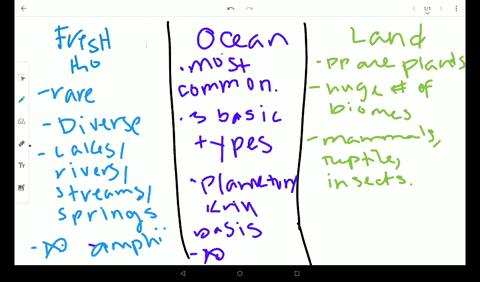 Frish
tho
-rare
-Diverse
-Lakes/
rivers/
streams/
springs
- amphi
Ocean
.most
common.
.3 basic
types
basis
Land
.pp are plants
-huge # of
biomes
-mammals,
reptile,
insects.